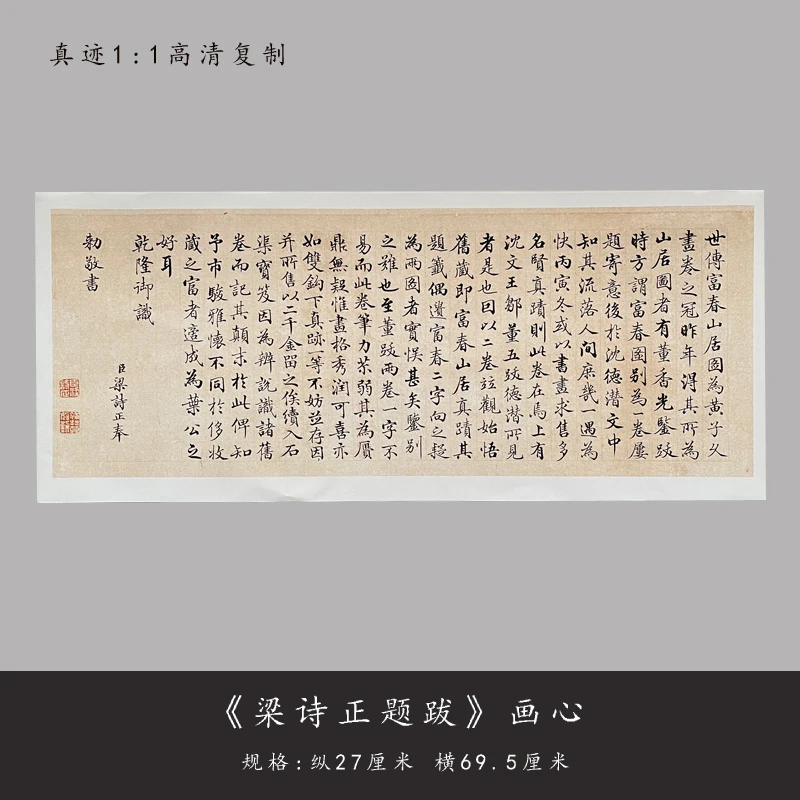 真迹1:1高清复制
世傳富春山居圖為黃子久
畫卷之冠昨年得其所為
山居圖者有董香光鑒跋
時方謂富春圖别為一卷屢
題寄意後於沈德潜文中
知其流落人間庶幾一遇為
快丙寅冬或以書畫求售多
名賢真蹟則此卷在焉上有
沈文王鄒董五跋德潜所見
者是也因以二卷竝觀始悟
舊藏即富春山居真蹟其
題籤偶遺富春二字向之疑
為兩圖者實悞甚矣鑒别
之難也至董跋兩卷一字不
易而此卷筆力苶弱其為贋
鼎無疑惟畫格秀潤可喜亦
如雙鈎下真跡一等不妨並存因
并所售以二千金留之俟續入石
渠寶笈因為辨説識諸舊
卷而記其顛末於此俾知
予市駿雅懷不同於侈收
藏之富者適成為葉公之
好耳
乾隆御識
臣梁詩正奉
勅敬書
《梁诗正题跋》画心
规格:纵27厘米 横69.5厘米